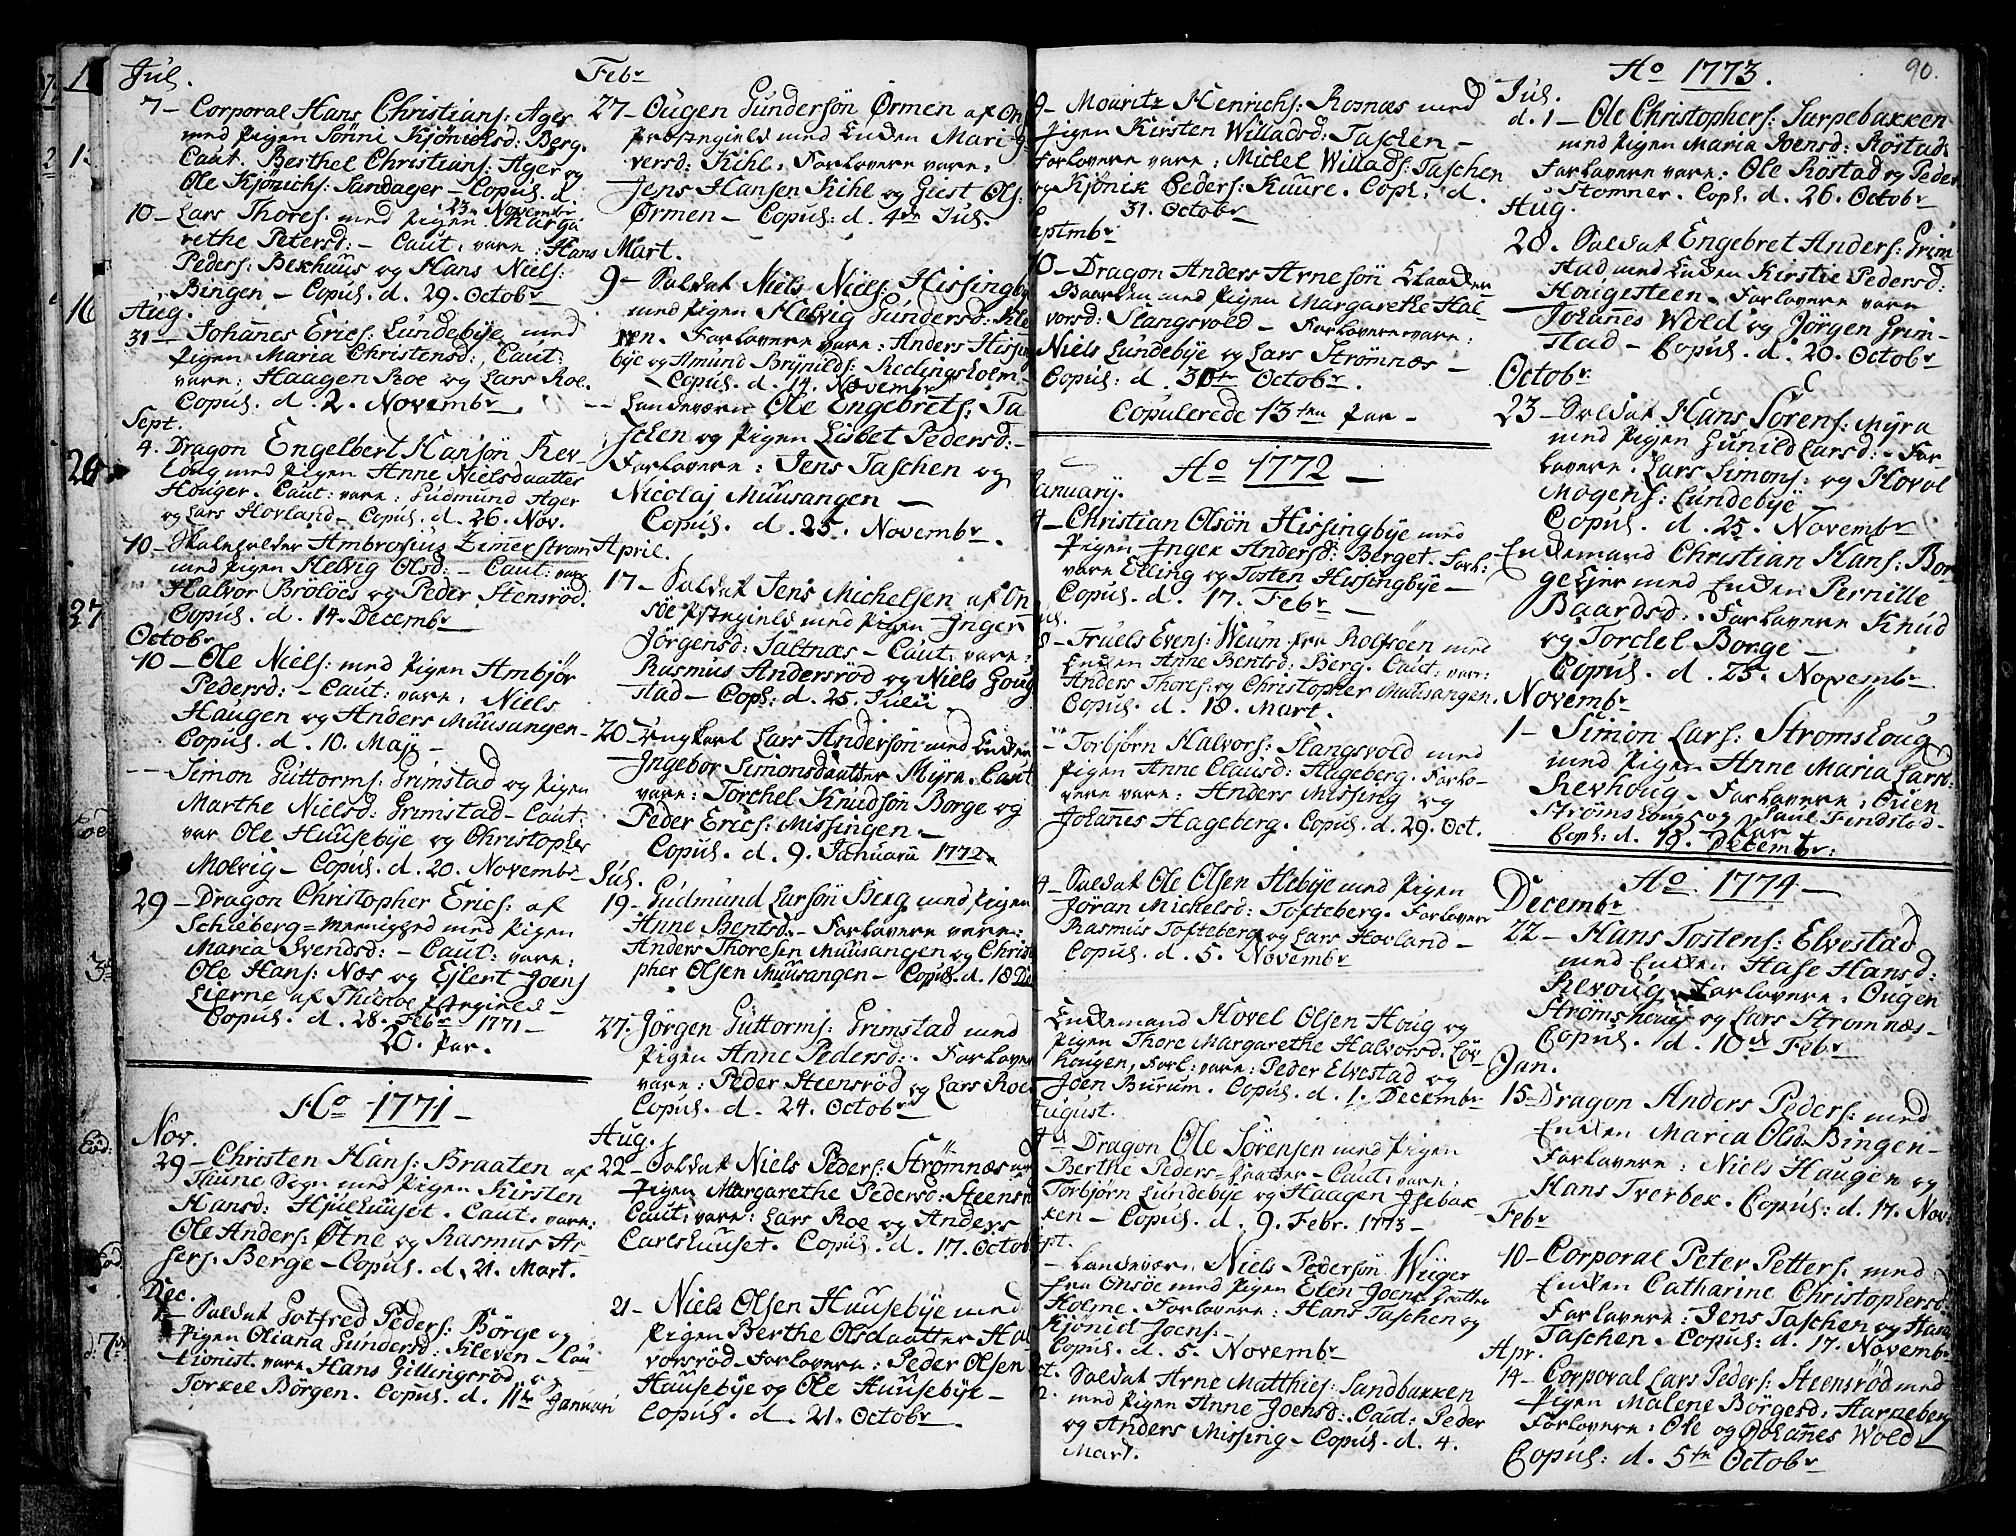 Jul.
7 – Corporal Hans Christians: Ager
med Pigen Sørni Kjønichsd: Berg.
Caut. Berthel Christians: Ager og
Ole Kjønichs: Sandager – Copul. d.
23. Novembr
10 – Lars Thores: med Pigen Marga
rethe Petersd: – Caut: vare: Hans
Peders: Bekhuus og Hans Niels:
Bingen – Copul. d. 29. Octobr
Aug.
31 – Johannes Erics: Lundebye med
Pigen Maria Christensd: Caut:
vare: Haagen Roe og Lars Roe.
Copul. d. 2. Novembr
Sept.
4. Dragon Engelbert Hansøn Rev-
houg med Pigen Anne Nielsdaatter
Houger. Caut: vare: Gudmund Ager
og Lars Hovland – Copul. d. 26. Nov.
10 – Skatefolder Ambrosius Zimerstrom
med Pigen Helvig Olsd: – Caut: vare
Halvor Bröløes og Peder Stensrød.
Copul. d. 14. Decembr
Octobr
10 – Ole Niels: med Pigen Ambjør
Pedersd: – Caut: vare: Niels
Haugen og Anders Muusangen –
Copul. d. 10. Maji –
– – Simon Guttorms: Grimstad og Pigen
Marthe Nielsd: Grimstad – Caut:
var Ole Huusebye og Christopher
Molvig – Copul. d. 20. Novembr
29 – Dragon Christopher Erics: af
Schieberg = Meenighed med Pigen
Maria Svendsd: – Caut: vare:
Ole Hans: Næs og Ejlert Joens
Lierne af Thunøe Pstegield –
Copul. d. 28. Febr 1771 –
20. Par.
Ao 1771 –
Nov.
29 – Christen Hans: Braaten af
Thune Sogn med Pigen Kirsten
Hansd: Hjulhuuset. Caut. vare:
Ole Anders: Øtne og Rasmus As-
sers: Berge – Copul. d. 21. Mart.
Dec.
Soldat Gotfred Peders: Børge og
Pigen Oliana Gundersd: Kleven – Cau
tionist. vare Hans Gillingsrød og
Torkel Börgen. Copul. d. 11te Januari
Febr
27 – Ougen Gundersön Ørmen af On
Præstegield med Enken Mari
versd: Kihl. Forlovere vare:
Jens Hansen Kihl og Giest Ols:
Ørmen – Copul: d. 4de Jul.
Mart.
9 – Soldat Niels Niels: Hissingby
med Pigen Helvig Gundersd: Kle
ven. Forlovere vare: Anders Hissin
bye og Amund Brynilds: Rødingsholm –
– Copul: d. 14. Novembr
– – Landeværn Ole Engebrets: Ta
schen og Pigen Lisbet Pedersd: –
Forlovere: Jens Taschen og
Nicolaj Muusangen –
Copul. d. 25. Novembr.
April.
17 – Soldat Jens Michelsen af On
søe Pstegield med Pigen Inger
Jörgensd: Saltnæs – Caut: vare:
Rasmus Andersrød og Niels Goug
stad – Copl: d. 25. Julii
20 – Ungkarl Lars Andersøn med Enken
Ingebor Simonsdaatter Myre. Caut
vare: Torchel Knudsøn Borge og
Peder Erics: Missingen –
Copul. d. 9. Januarii 1772
Jul.
19 – Gudmund Larsön Berg med Pigen
Anne Bentsd: – Forlovere vare:
Anders Thoresen Muusangen og Christo
pher Olsen Muusangen – Copul. d. 18 De
27. Jörgen Guttorms: Grimstad med
Pigen Anne Pedersd: . Forlovere
vare: Peder Steensrød og Lars Roe
Copul. d. 24. Octobr
Aug.
22 – Soldat Niels Peders: Strømnæs med
Pigen Margarethe Pedersd: Steensrø
Caut: vare: Lars Roe og Anders
Carlshuuset. Copul. d. 17. Octobr
21 – Niels Olsen Huusebye med
Pigen Berthe Olsdaatter Hal
vorsrød – Forlovere: Peder Olsen
Huusebye og Ole Huusebye –
Copul. d. 21. Octobr
9 – Mouritz Henrichs: Rosnæs med
Pigen Kirsten Willadsd: Taschen –
Forlovere vare: Michel Willads: Taschen
og Kjönik Peders: Kuure. Copl. d.
31. Octobr
eptmbr
10 – Dragon Anders Arnesön Elaader
Gaarden med Pigen Margarethe Hal-
vorsd: Slangsvold – Forlovere vare:
Niels Lundebye og Lars Strømnæs –
Copul: d. 30te Octobr.
Copulerede 13ten Par –
Ao 1772 –
Januarij.
4 – Christian Olsön Hissingbye med
Pigen Inger Andersd: Berget. Forl:
vare Elling og Tosten Hissingbye –
Copul. d. 17. Febr –
8 – Truels Evens: Weum fra Rolfsöen med
Enken Anne Bentsd: Berg. Caut: var:
Anders Thores: og Christopher Muusangen.
Copul. d. 18. Mart.
– Torbjörn Halvors: Slangsvold med
Pigen Anne Clausd: Hageberg. Forlo-
vere vare: Anders Missing og
Johannes Hageberg. Copul. d. 29. Oct.
4 – Soldat Ole Olsen Aebye med Pigen
Jöran Michelsd: Tofteberg. Forlovere
Rasmus Tofteberg og Lars Hovland –
Copul. d. 5. Novembr
Enkemand Hovel Olsen Houg og
Pigen Thore Margarethe Halvorsd. Löv-
hougen, Forl: vare: Peder Elvestad og
Joen Burum. Copul. d. 1. Decembr
August.
Dragon Ole Sörensen med Pigen
Berthe Peders = Daatter – Caut: vare:
Torbjörn Lundebye og Haagen Isebak
ken – Copul. d. 9. Febr. 1773 –
pt.
– Landeværn Niels Pedersön Wiiger
fra Onsöe med Pigen Elen Joens Daatter
Holme. Forlovere: Hans Taschen og
Kjönich Joens: –
Copul. d. 5. Novembr
Soldat Arne Matthies: Sandbakken
med Pigen Anne Joensd: Caut: Peder
og Anders Missing – Copul. d. 4.
Mart.
90.
Ao 1773.
Jul.
d. 1 – Ole Christophers: Sarpebakken
med Pigen Maria Joensd: Röstad
Forlovere vare: Ole Röstad og Peder
Stomner. Copl. d. 26. Octobr
Aug.
28. Soldat Engebret Anders: Grim
stad med Enken Kirstie Pedersd:
Hougesteen – Forlovere vare
Johannes Wold og Jörgen Grim-
stad – Copul. d. 20. Octobr
Octobr
23 – Soldat Hans Sörens: Myra
med Pigen Gunild Larsd: – For-
lovere. Lars Simons: og Hovel
Mogens: Lundebye
Copul. d. 25. Novembr
– Enkemand Christian Hans: Bor
ge Eier med Enken Pernille
Baardsd: Forlovere Knud
og Torchel Borge –
Copul. d. 25. Novembr
Novembr
1 – Simon Lars: Stromshoug
med Pigen Anne Maria Larsd:
Revhoug – Forlovere: Ouen
Strömshoug og Poul Findstad –
Copl: d. 18. Decembr:
Par
Ao 1774 –
Decembr
22 – Hans Tostens: Elvestad
med Enken Aase Hansd:
Revoug. Forlovere: Ougen
Strömshoug og Lars Stromnæs –
Copul. d. 10de Febr
Jan.
15 – Dragon Anders Peders: med
Enken Maria Olsd: Bingen –
Forlovere: Niels Haugen og
Hans Tverbek. Copul: d. 17. Nov
Febr
10 – Corporal Peter Petters: med
Enken Catharine Christophersd:
Forlovere: Jens Taschen og Hans
Taschen – Copul: d. 17. Novembr
Apr.
14 – Corporal Lars Peders: Steensröd med
Pigen Malene Börgesd: Harneberg
Forlovere: Ole og Johannes Wold
Copul: d. 5te Octobr